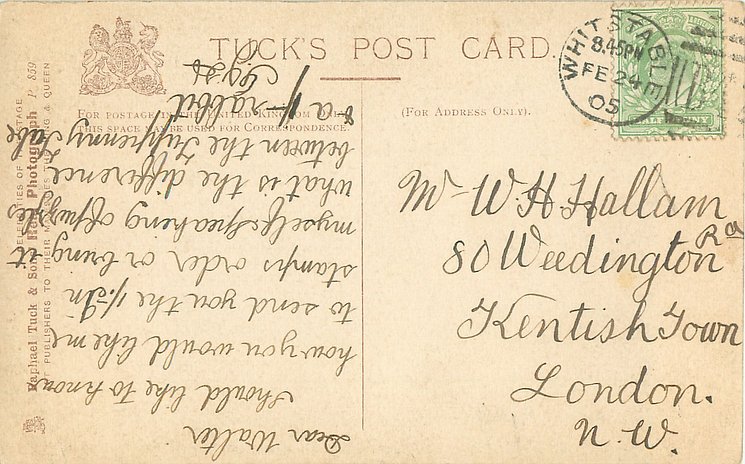 TUCK'S POST CARD.
FOR POSTAGE IN THE UNITED KINGDOM ONLY
THIS SPACE MAY BE USED FOR CORRESPONDENCE.
(FOR ADDRESS ONLY).
WHITSTABLE
8.45PM
FE 24
05
HALFPENNY
Mr W. H. Hallam
80 Weedington Rd
Kentish Town
London.
N. W.
Dear Walter
Should like to know
how you would like me
to send you the 1/5. In
stamps order or bring it
myself. Speaking of puzzles
what is the difference
between the Tuppenny Tube
& a 1/- rabbit
CELEBRITIES OF THE STAGE
Raphael Tuck & Sons' Real Photograph P. 859
ART PUBLISHERS TO THEIR MAJESTIES THE KING & QUEEN